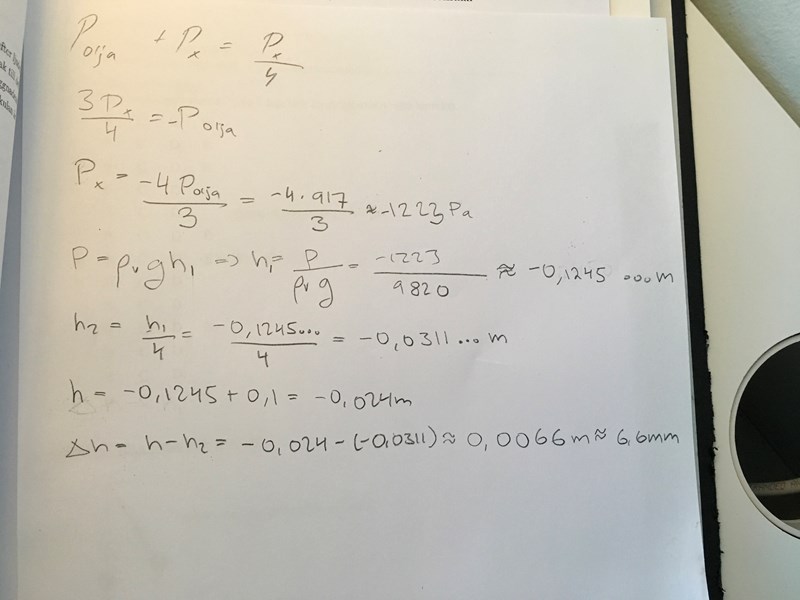 P_olja + P_x = P_x/4
3P_x/4 = -P_olja
P_x = -4P_olja/3 = -4·917/3 ≈ -1223 Pa
P = ρ_v g h_1 => h_1 = P/ρ_v g = -1223/9820 ≈ -0,1245...m
h_2 = h_1/4 = -0,1245.../4 = -0,0311...m
h = -0,1245 + 0,1 = -0,024m
Δh = h-h_2 = -0,024-(-0,0311) ≈ 0,0066m ≈ 6,6mm